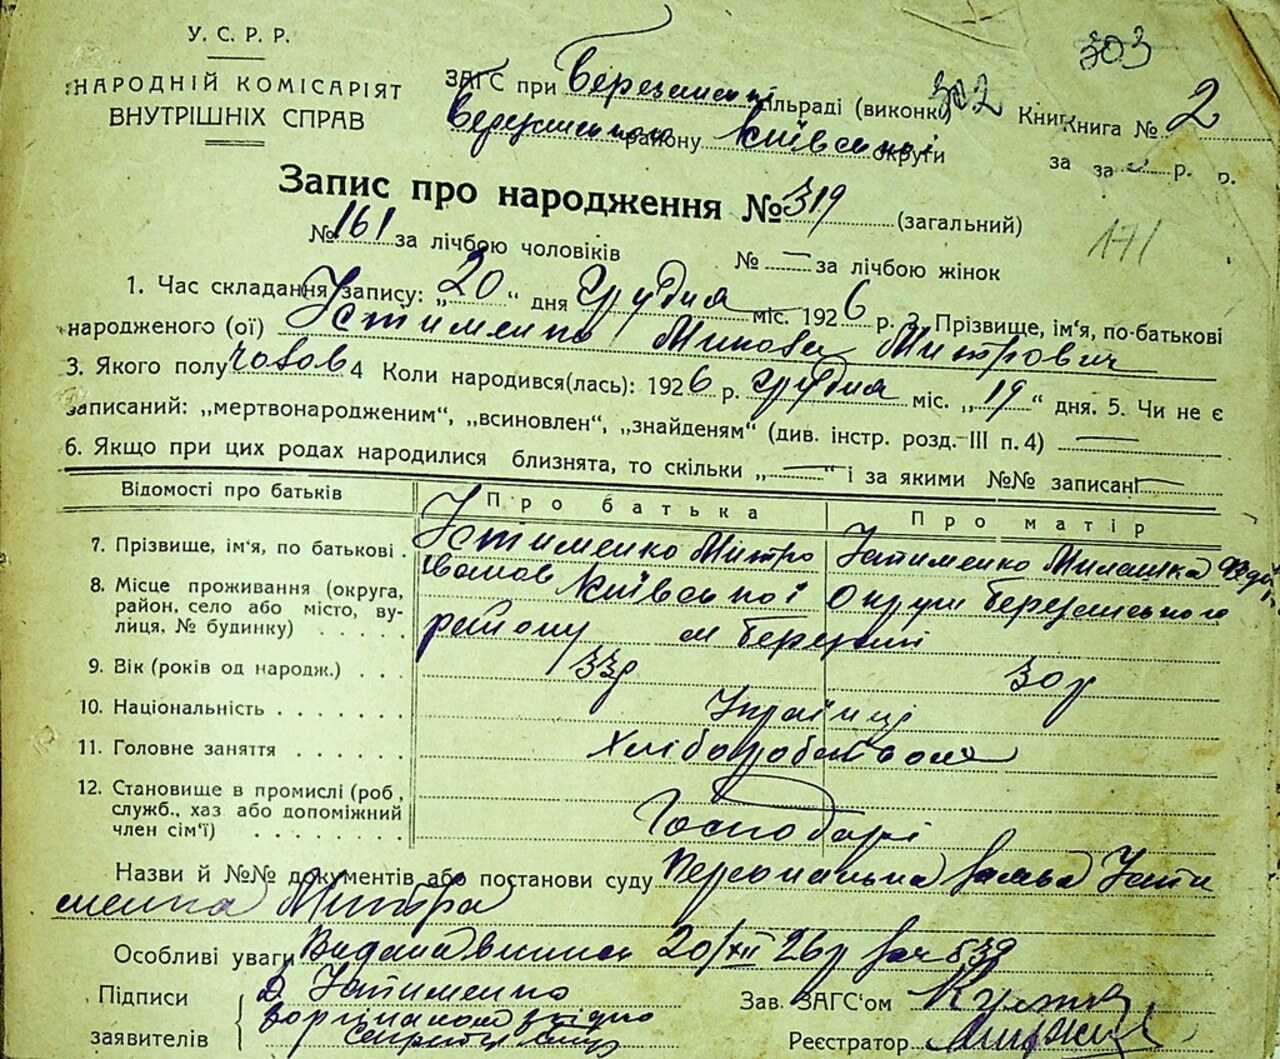 303
У. С. Р. Р.
НАРОДНІЙ КОМІСАРІЯТ
ВНУТРІШНІХ СПРАВ
ЗАГС при Березанськ сільраді (виконк) 302 Книга № 2
Березанського району Київської округи за р.
Запис про народження № 319 (загальний)
№ 161 за лічбою чоловіків № — за лічбою жінок
171
1. Час складання запису: „20“ дня Грудня міс. 1926 р. 2. Прізвище, ім‘я, по-батькові
народженого (ої) Устименко Микола Митрович
3. Якого полу чолов 4 Коли народився(лась): 1926 р. Грудня міс. „19“ дня. 5. Чи не є
записаний: „мертвонародженим“, „всиновлен“, „знайденям“ (див. інстр. розд. III п. 4) —
6. Якщо при цих родах народилися близнята, то скільки „—“ і за якими №№ записані —
Відомості про батьків Про батька Про матір
7. Прізвище, ім‘я, по батькові . Устименко Митро Іванов Устименко Милашка
8. Місце проживання (округа, район, село або місто, вулиця, № будинку) . . . . . Київської Округи Березанського
району м Березані
9. Вік (років од народж.) . . . 33р 30р
10. Національність . . . . . . . Українці
11. Головне заняття . . . . . . Хліборобством
12. Становище в промислі (роб, служб., хаз або допоміжний член сім‘ї) . . . . . . . . Господарі
Назви й №№ документів або постанови суду Персональна заява Усти
менка Митра
Особливі уваги Видана виписк 20/XII 26р за № 539
Підписи Д Устименко Зав. ЗАГС‘ом
заявителів З оргіналом згідно
Секретар Реєстратор